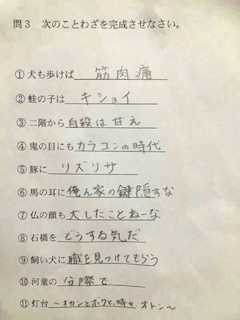 問3 次のことわざを完成させなさい。
① 犬も歩けば 筋肉痛
② 蛙の子は キショイ
③ 二階から 自殺は甘え
④ 鬼の目にも カラコンの時代
⑤ 豚に リズリサ
⑥ 馬の耳に 俺ん家の鍵隠すな
⑦ 仏の顔も 大したことねーな
⑧ 石橋を どうする気だ
⑨ 飼い犬に 職を見つけてもらう
⑩ 河童の 分際で
⑪ 灯台 〜オカンとボクと、時々、オトン〜